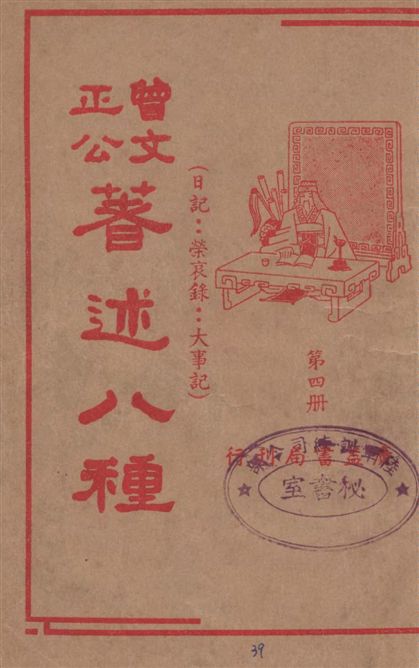 第四册
益書局刊行
秘書室
(日記：榮哀錄：大事記)
曾文正公著述八種
39